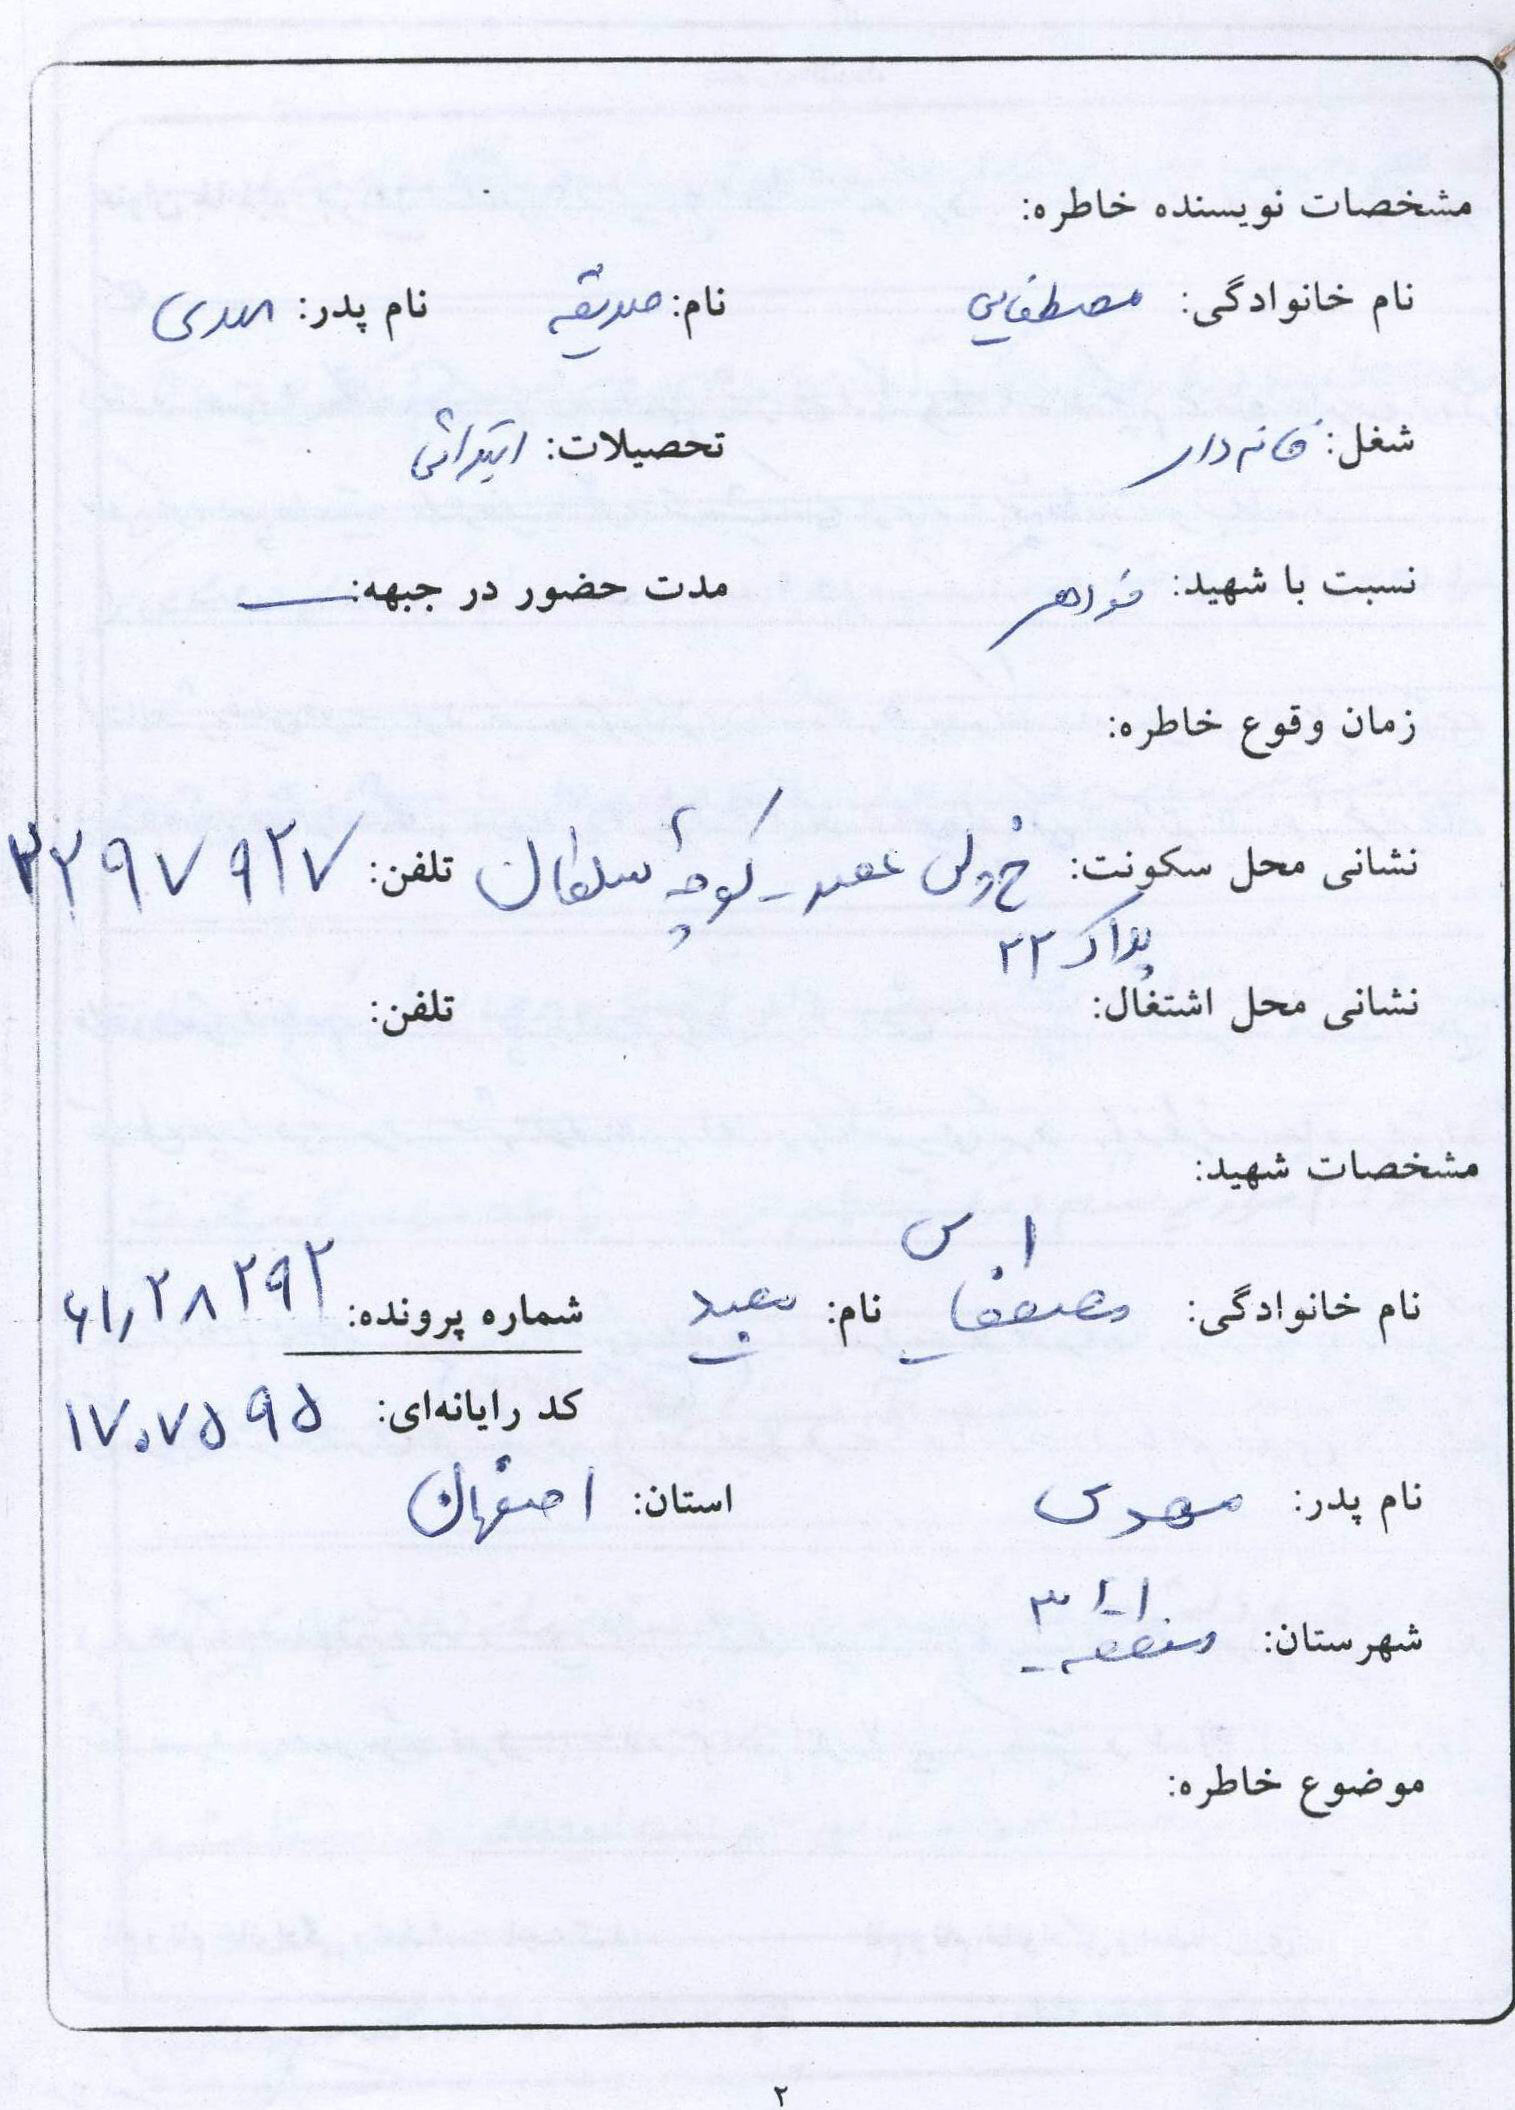 مشخصات نویسنده خاطره:
نام خانوادگی: مصطفایی نام: صدیقه نام پدر: مهدی
شغل: خانه‌دار تحصیلات: ابتدائی
نسبت با شهید: خواهر مدت حضور در جبهه: ـــ
زمان وقوع خاطره:
نشانی محل سکونت: خ ولی عصر - کوچه سلطان تلفن: ۳۲۹۷۹۲۷
پلاک ۲۲
نشانی محل اشتغال: تلفن:
مشخصات شهید:
نام خانوادگی: مصطفایی نام: سعید شماره پرونده: ۶۱٫۲۸۲۹۲
کد رایانه‌ای: ۱۷۰۷۵۹۵
نام پدر: مهدی استان: اصفهان
شهرستان: منطقه ۳
موضوع خاطره:
۲